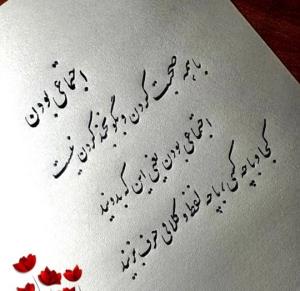 اجتماعی بودن
با همه صحبت کردن و بگو بخند کردن نیست
اجتماعی بودن یعنی این که بدونید
کجا و با چه کسی، با چه لفظ و کلامی حرف بزنید